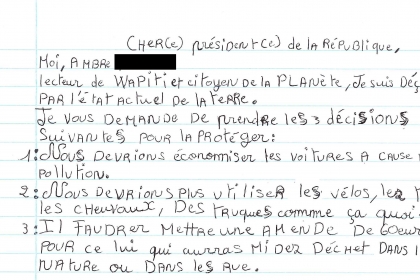 CHER(e) président(e) de la RÉPUBLIQUE,
Moi, AMBRE
lecteur de WAPITI et citoyen de la PLANÈTE, Je suis DÉÇ
PAR l'état actuel de la terre.
Je vous DEMANDE DE prendre les 3 décisions
Suivantes pour la protéger:
1: Nous devrions économiser les voitures à cause
pollution.
2: Nous devrions plus utiliser les vélos, les
les chevaux, Des truques comme ça quoi
3: Il FAUDRER Mettre une AMENDE De
Pour ce lui qui auras mi Dez DÉCHET DANS
NATURE ou Dans les Rue.